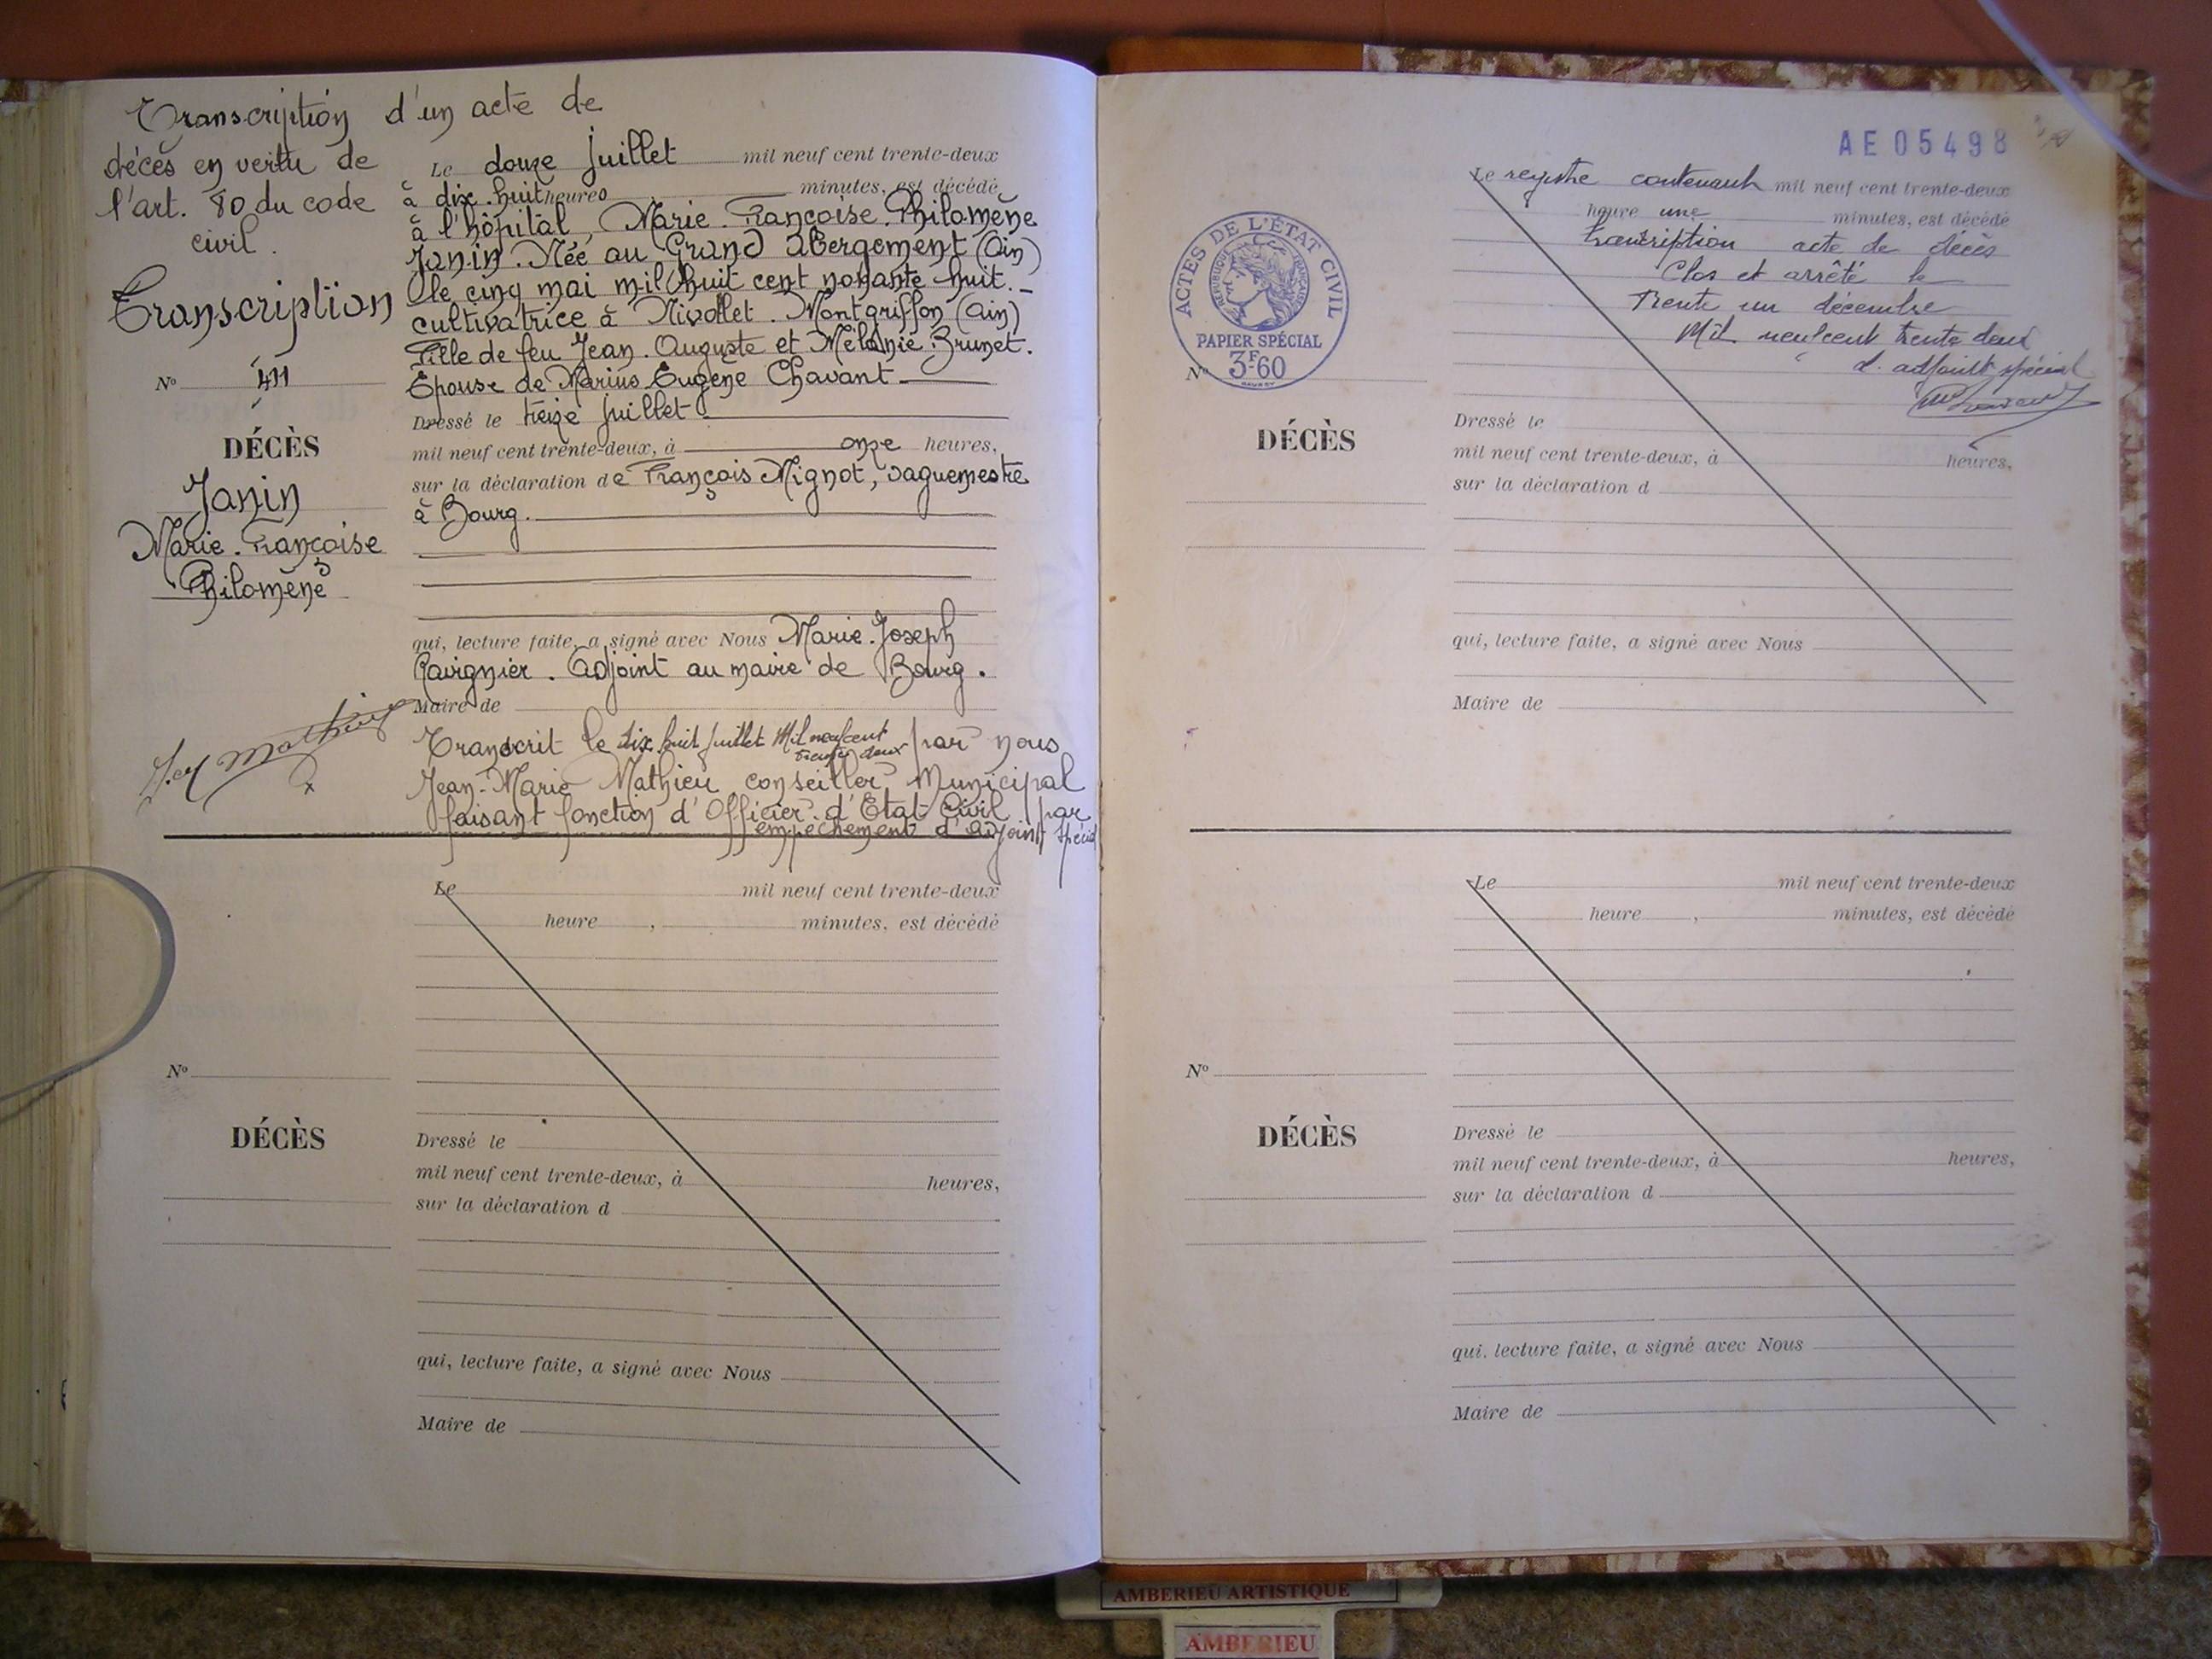 Transcription d'un acte de
décès en vertu de
l'art. 80 du code
civil.
Transcription
N° 411
DÉCÈS
Janin
Marie-Françoise
Philomène
Le douze juillet mil neuf cent trente-deux
à dix-huit heures minutes, est décédé
à l'hôpital, Marie-Françoise-Philomène
Janin. Née au Grand Abergement (Ain)
le cinq mai mil huit cent nonante huit. _
cultivatrice à Nivollet-Montgriffon (Ain)
Fille de feu Jean-Auguste et Mélanie Brunet.
Epouse de Marius Eugène Chavant
Dressé le treize juillet
mil neuf cent trente-deux, à onze heures,
sur la déclaration de François Mignot, vaguemestre
à Bourg.
qui, lecture faite, a signé avec Nous Marie-Joseph
Ravignier. Adjoint au maire de Bourg.
Maire de
Mathieu
Transcrit le dix huit juillet Mil neufcent
trente deux par nous
Jean-Marie Mathieu conseiller Municipal
faisant fonction d'Officier d'Etat-Civil par
empechement d'adjoint spécial
Le mil neuf cent trente-deux
heure , minutes, est décédé
N°
DÉCÈS
Dressé le
mil neuf cent trente-deux, à heures,
sur la déclaration d
qui, lecture faite, a signé avec Nous
Maire de
AE05498
ACTES DE L'ÉTAT CIVIL
RÉPUBLIQUE FRANÇAISE
PAPIER SPÉCIAL
3F60
Le registre contenant mil neuf cent trente-deux
heure une minutes, est décédé
transcription acte de décès
Clos et arrêté le
Trente un décembre
Mil neufcent trente deux
L. adjoint spécial
N°
DÉCÈS
Dressé le
mil neuf cent trente-deux, à heures,
sur la déclaration d
qui, lecture faite, a signé avec Nous
Maire de
Le mil neuf cent trente-deux
heure , minutes, est décédé
N°
DÉCÈS
Dressé le
mil neuf cent trente-deux, à heures,
sur la déclaration d
qui, lecture faite, a signé avec Nous
Maire de
AMBERIEU ARTISTIQUE
AMBERIEU